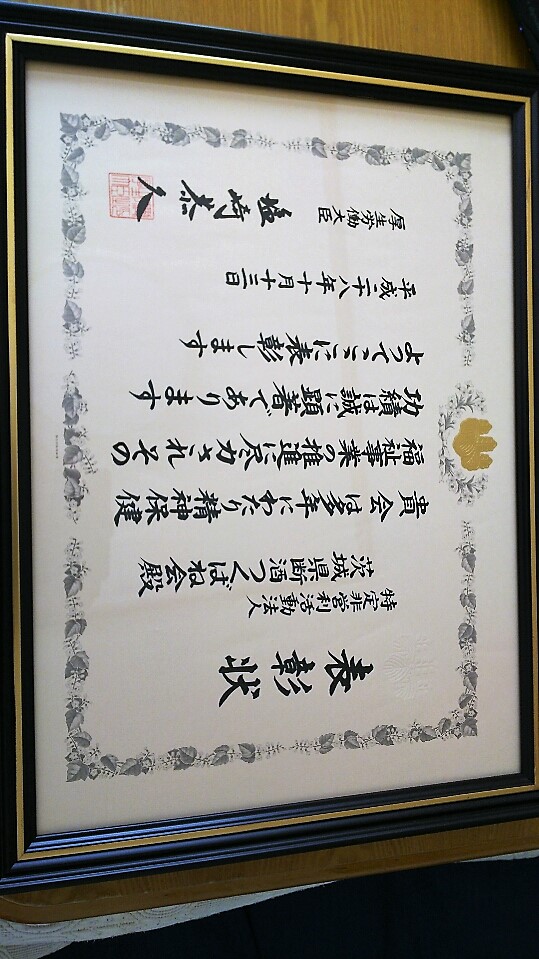 表彰状
特定非営利活動法人
茨城県断酒つくばね会殿
貴会は多年にわたり精神保健
福祉事業の推進に尽力されその
功績は誠に顕著であります
よってここに表彰します
平成二十八年十月十三日
厚生労働大臣
塩崎恭久